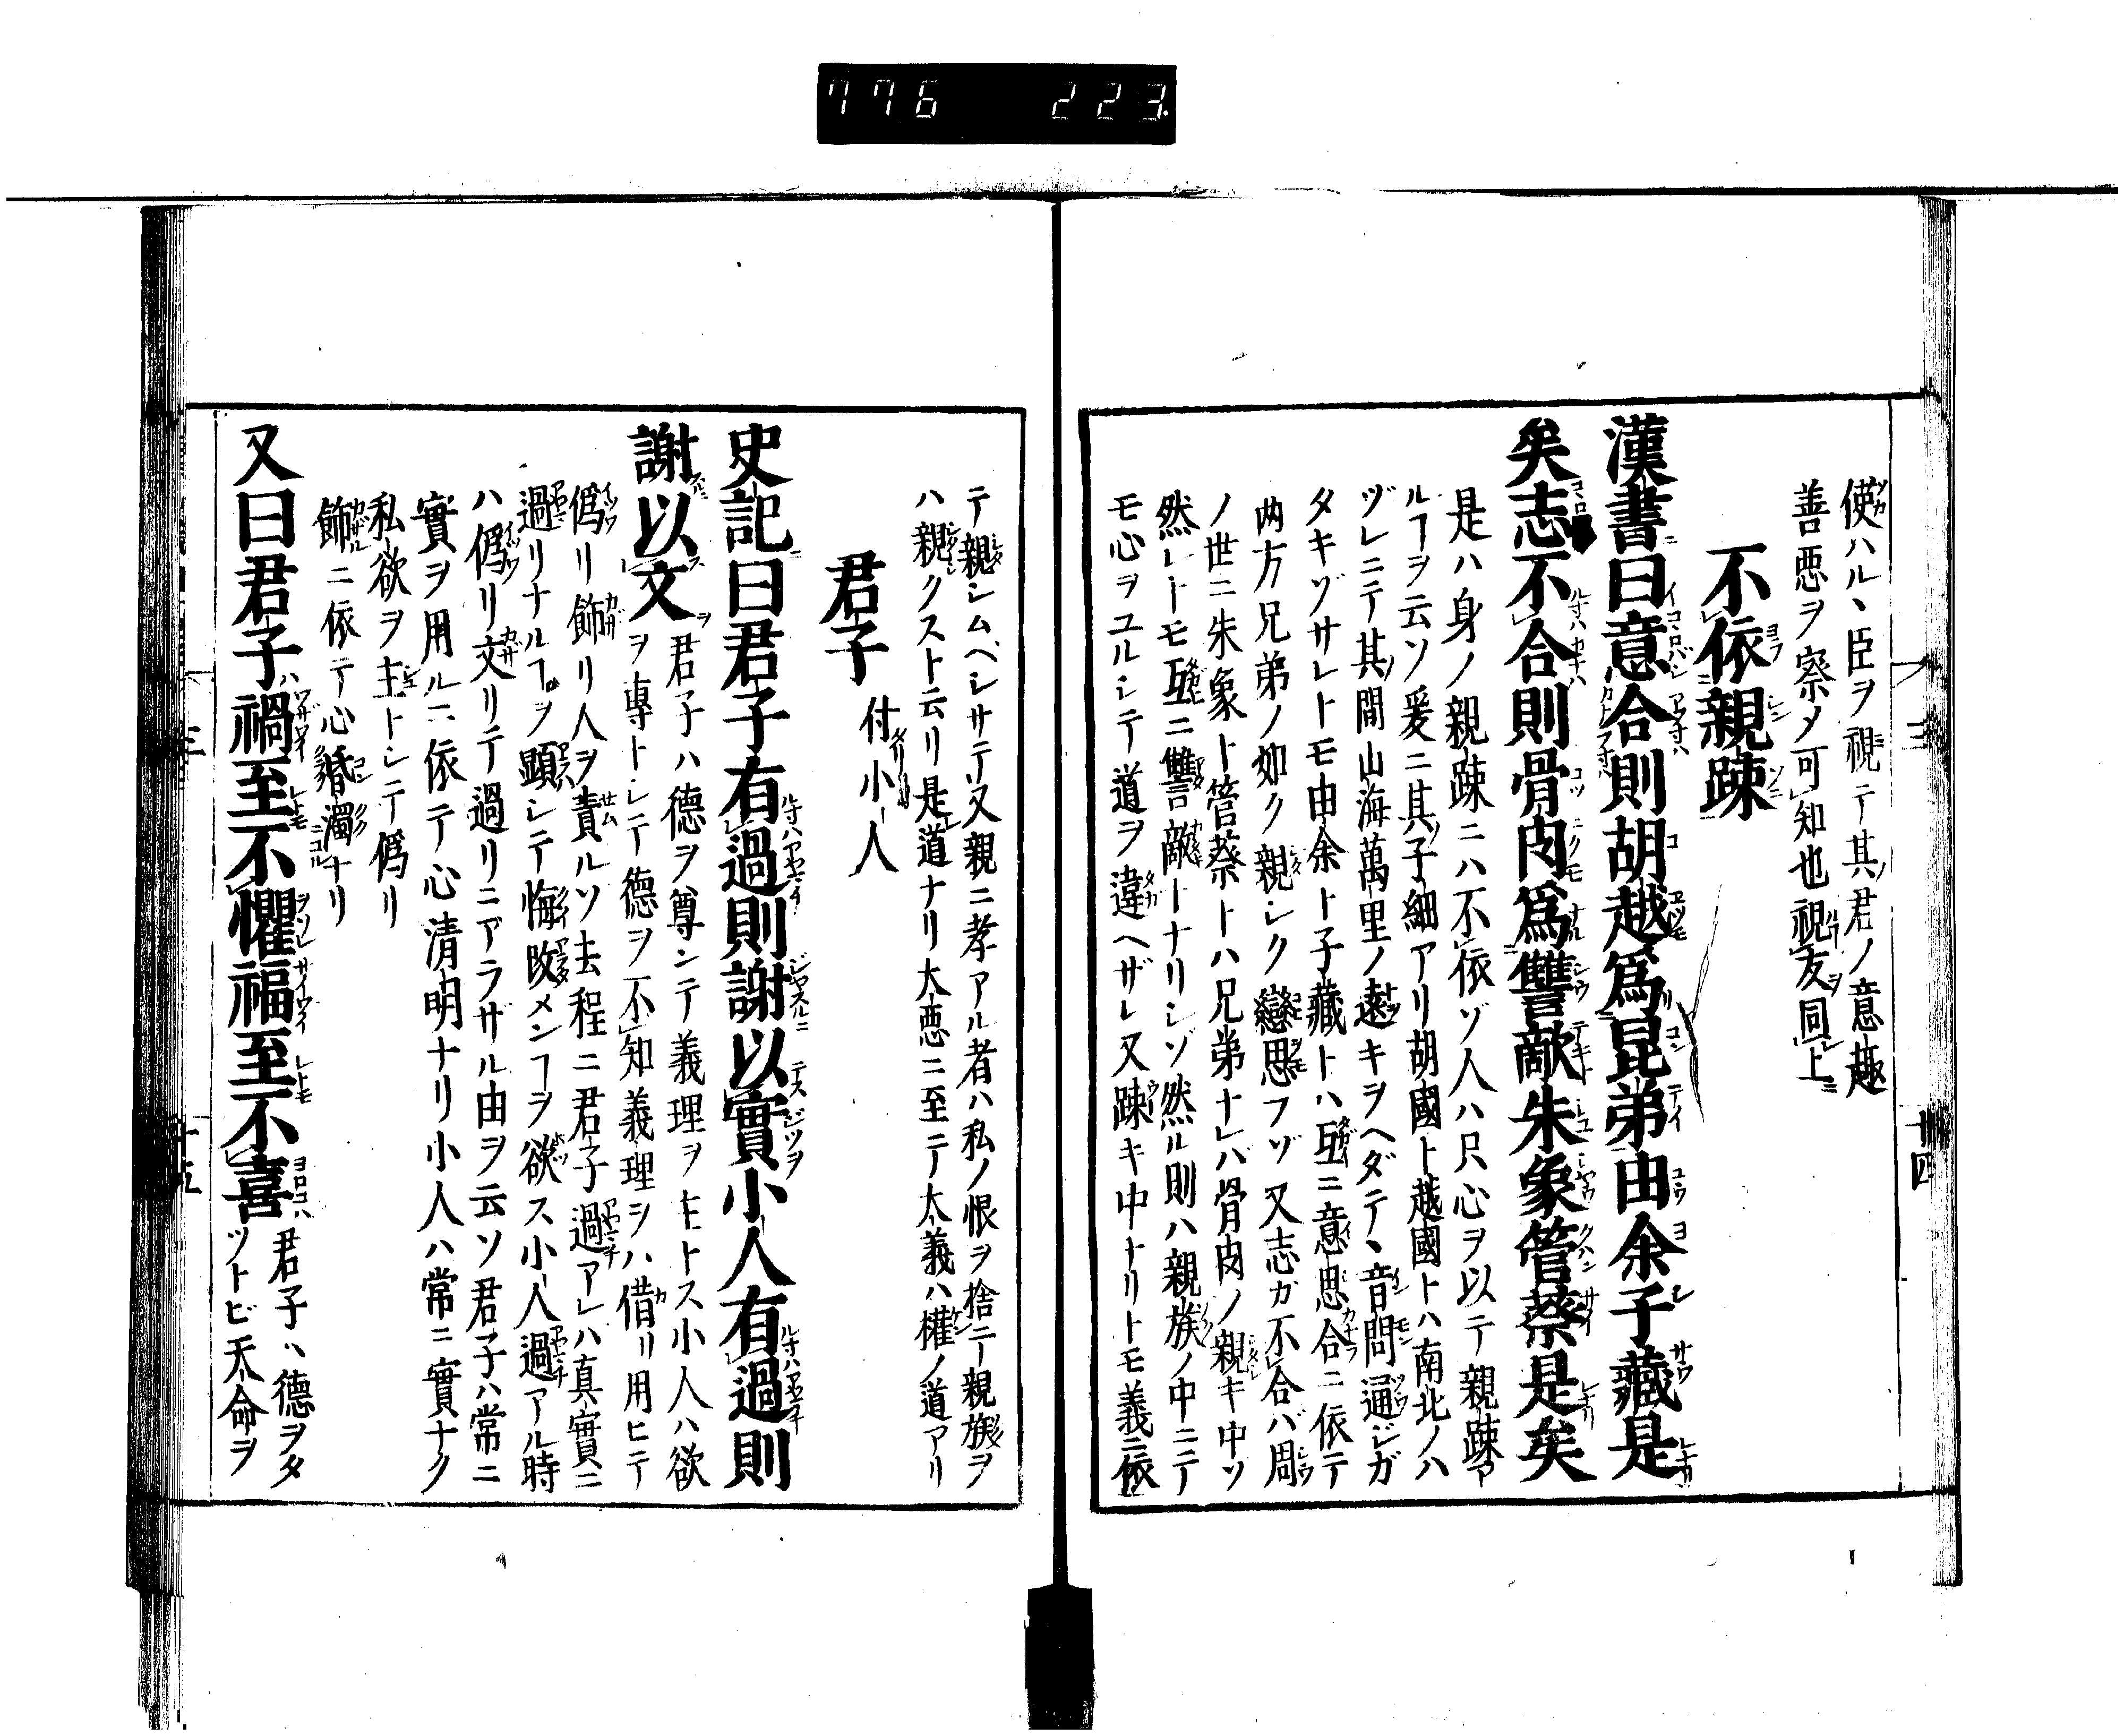 776 223
使ハル丶臣ヲ視テ其ノ君ノ意趣
善悪ヲ察メ可知也視友同上
不依親踈
漢書曰意合則胡越爲昆弟由余子藏是
矣志不合則骨肉爲讐敵朱象管蔡是矣
是ハ身ノ親踈ニハ不依ゾ人ハ只心ヲ以テ親踈ア
ルヿヲ云ソ爰ニ其ノ子細アリ胡國ト越國トハ南北ノハ
ヅレニテ其ノ間山海萬里ノ遠キヲヘダテ丶音問通ジガ
タキゾサレトモ由余ト子藏トハ互ニ意思合ニ依テ
两方兄弟ノ如ク親シク戀思フゾ又志カ不合バ周
ノ世ニ朱象ト管蔡トハ兄弟ナレバ骨肉ノ親キ中ツ
然レトモ互ニ讐敵トナリシゾ然ル則ハ親族ノ中ニテ
モ心ヲユルシテ道ヲ違ヘザレ又踈キ中ナリトモ義ニ依
三
廿四
テ親シムベシサテ又親ニ孝アル者ハ私ノ恨ヲ捨テ親族ヲ
ハ親クスト云リ是道ナリ大悪ニ至テ大義ハ權ノ道アリ
君子 付小人
史記曰君子有過則謝以實小人有過則
謝以文 君子ハ德ヲ尊ンテ義理ヲ主トス小人ハ欲
ヲ專トシテ德ヲ不知義理シハ借リ用ヒテ
僞リ飾リ人ヲ責ルソ去程ニ君子過アレハ真實ニ
過リナルヿヲ顕シテ悔改メンヿヲ欲ス小人過アル時
ハ僞リ文リテ過リニアラザル由ヲ云ソ君子ハ常ニ
實ヲ用ルニ依テ心清明ナリ小人ハ常ニ實ナク
私欲ヲ主トシテ僞リ
飾ニ依テ心㬰濁ナリ
又曰君子禍至不懼福至不喜 君子ハ德ヲタ
ツトビ天命ヲ
三
十五